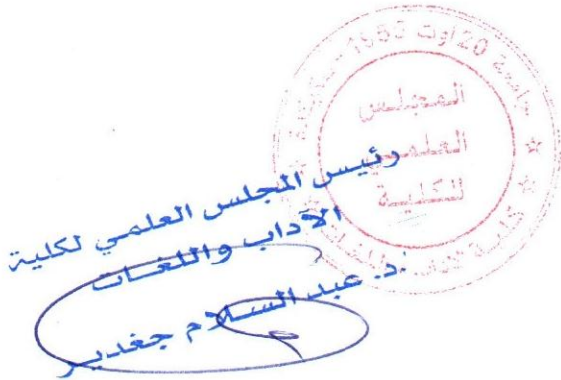 جامعة 20 أوت 1955
المجلس
العلمي
للكلية
رئيس المجلس العلمي لكلية
الآداب واللغات
أ.د. عبد السلام جغدير